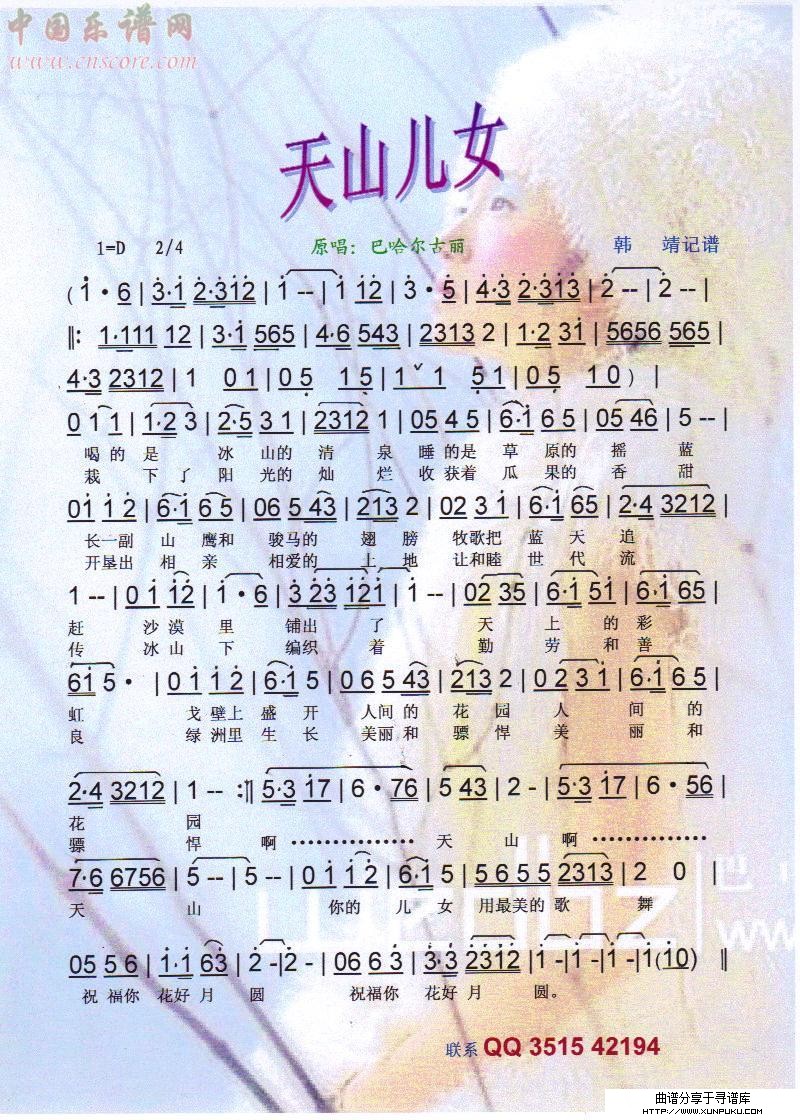 中国乐谱网
www.cnscore.com
天山儿女
1=D 2/4 原唱：巴哈尔古丽 韩 靖记谱
(1·6|3·1 2·312|1--|1 12|3·5|4·3 2·313|2--|2--|
‖: 1·111 12|3·1 565|4·6 543|2313 2|1·2 31|5656 565|
4·3 2312|1 01|05 15|1ˇ1 51|05 10)|
0 1 1|1·2 3|2·5 3 1|2312 1|05 4 5|6·1 6 5|05 46|5--|
喝的是 冰山的清 泉睡的是草原的 摇 蓝
栽 下了阳光的灿 烂收获着瓜果的 香 甜
01 1 2|6·1 6 5|06 5 43|213 2|02 3 1|6·1 65|2·4 3212|
长一副 山 鹰和 骏马的 翅 膀 牧歌把 蓝 天 追
开垦出 相 亲 相爱的 土 地 让和睦 世 代 流
1--|0 1 12|1·6|3 23 121|1--|02 35|6·1 51|6·1 65|
赶 沙 漠 里 铺出 了 天 上 的 彩
传 冰 山 下 编织 着 勤 劳 和 善
61 5·|0 1 1 2|6·1 5|0 6 5 43|213 2|0 2 3 1|6·1 6 5|
虹 戈 壁上 盛 开 人间 的 花 园 人 间 的
良 绿 洲里 生 长 美丽 和 骠 悍 美 丽 和
2·4 3212|1--:‖5·3 17|6·76|5 43|2-|5·3 17|6·56|
花 园
骠 悍 啊 ⋯⋯⋯⋯⋯ 天 山 啊 ⋯⋯⋯⋯
7·6 6756|5--|5--|01 0 1 2|6·1 5|5 6 5 5 2313|2 0|
天 山 你的 儿 女 用最美的 歌 舞
05 5 6|1·1 63|2-|2-|06 6 3|3·3 2312|1-|1-|1-|1(10)‖
祝 福你 花好 月 圆 祝福你 花好 月 圆。
联系 QQ 3515 42194
曲谱分享于寻谱库
HTTP://WWW.XUNPUKU.COM